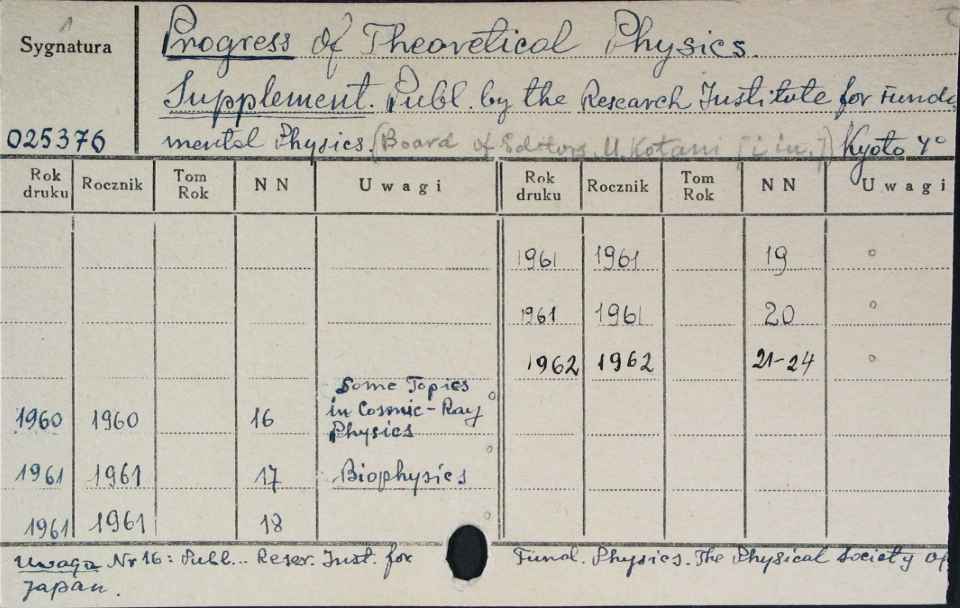 Sygnatura
025376
Progress of Theoretical Physics.
Supplement. Publ. by the Research Institute for Funda
mental Physics. (Board of Editors. M. Kotani [i in.]) Kyoto 4°
Rok druku Rocznik Tom Rok NN Uwagi Rok druku Rocznik Tom Rok NN Uwagi
1961 1961 19
1961 1961 20
1962 1962 21-24
1960 1960 16 Some Topics in Cosmic-Ray Physics
1961 1961 17 Biophysics
1961 1961 18
Uwaga Nr 16: Publ... Reser. Inst. for Fund. Physics. The Physical Society of
Japan.